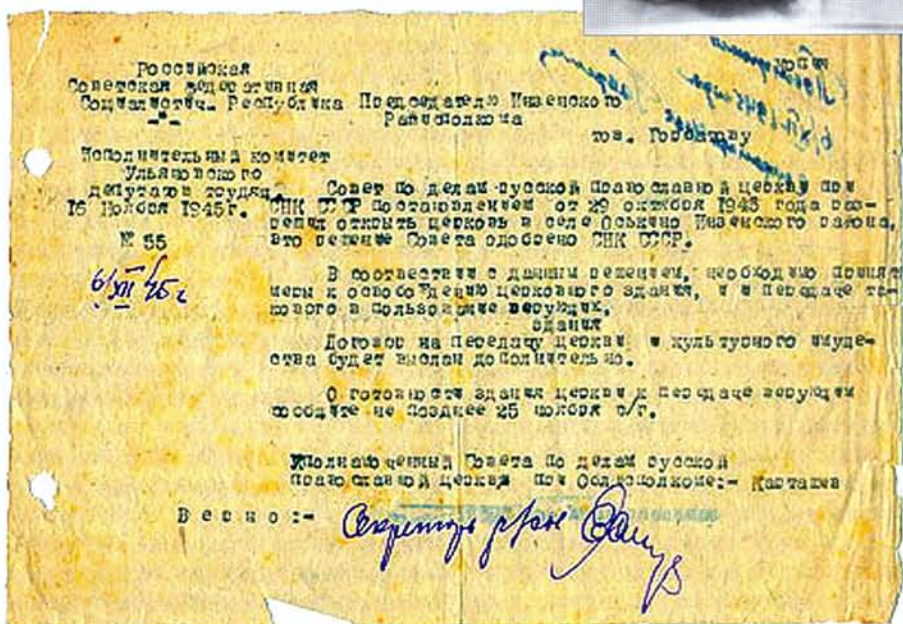 копия
Российская
Советская Федеративная
Социалистич. Республика
-"-
Председателю Инзенского
Райисполкома
тов. Горбатову
Исполнительный комитет
Ульяновского
депутатов трудящ.
16 Ноября 1945г.
№ 55
6/XII 45 г
Совет по делам русской православной церкви при
СНК СССР постановлением от 29 октября 1945 года раз-
решил открыть церковь в селе Оськино Инзенского района,
это решение Совета одобрено СНК СССР.
В соотвествии с данным решением, необходимо принят
меры к освобождению церковного здания, и и передаче та-
кового в пользование верующих.
здания
Договор на передачу церкви и культурного имуще-
ства будет выслан дополнительно.
О готовности здания церкви к передаче верующим
сообщите не позднее 25 ноября с/г.
Уполнамоченный Совета по делам русской
православной церкви при Облисполкоме:- Карташев
Верно:-
Секретарь